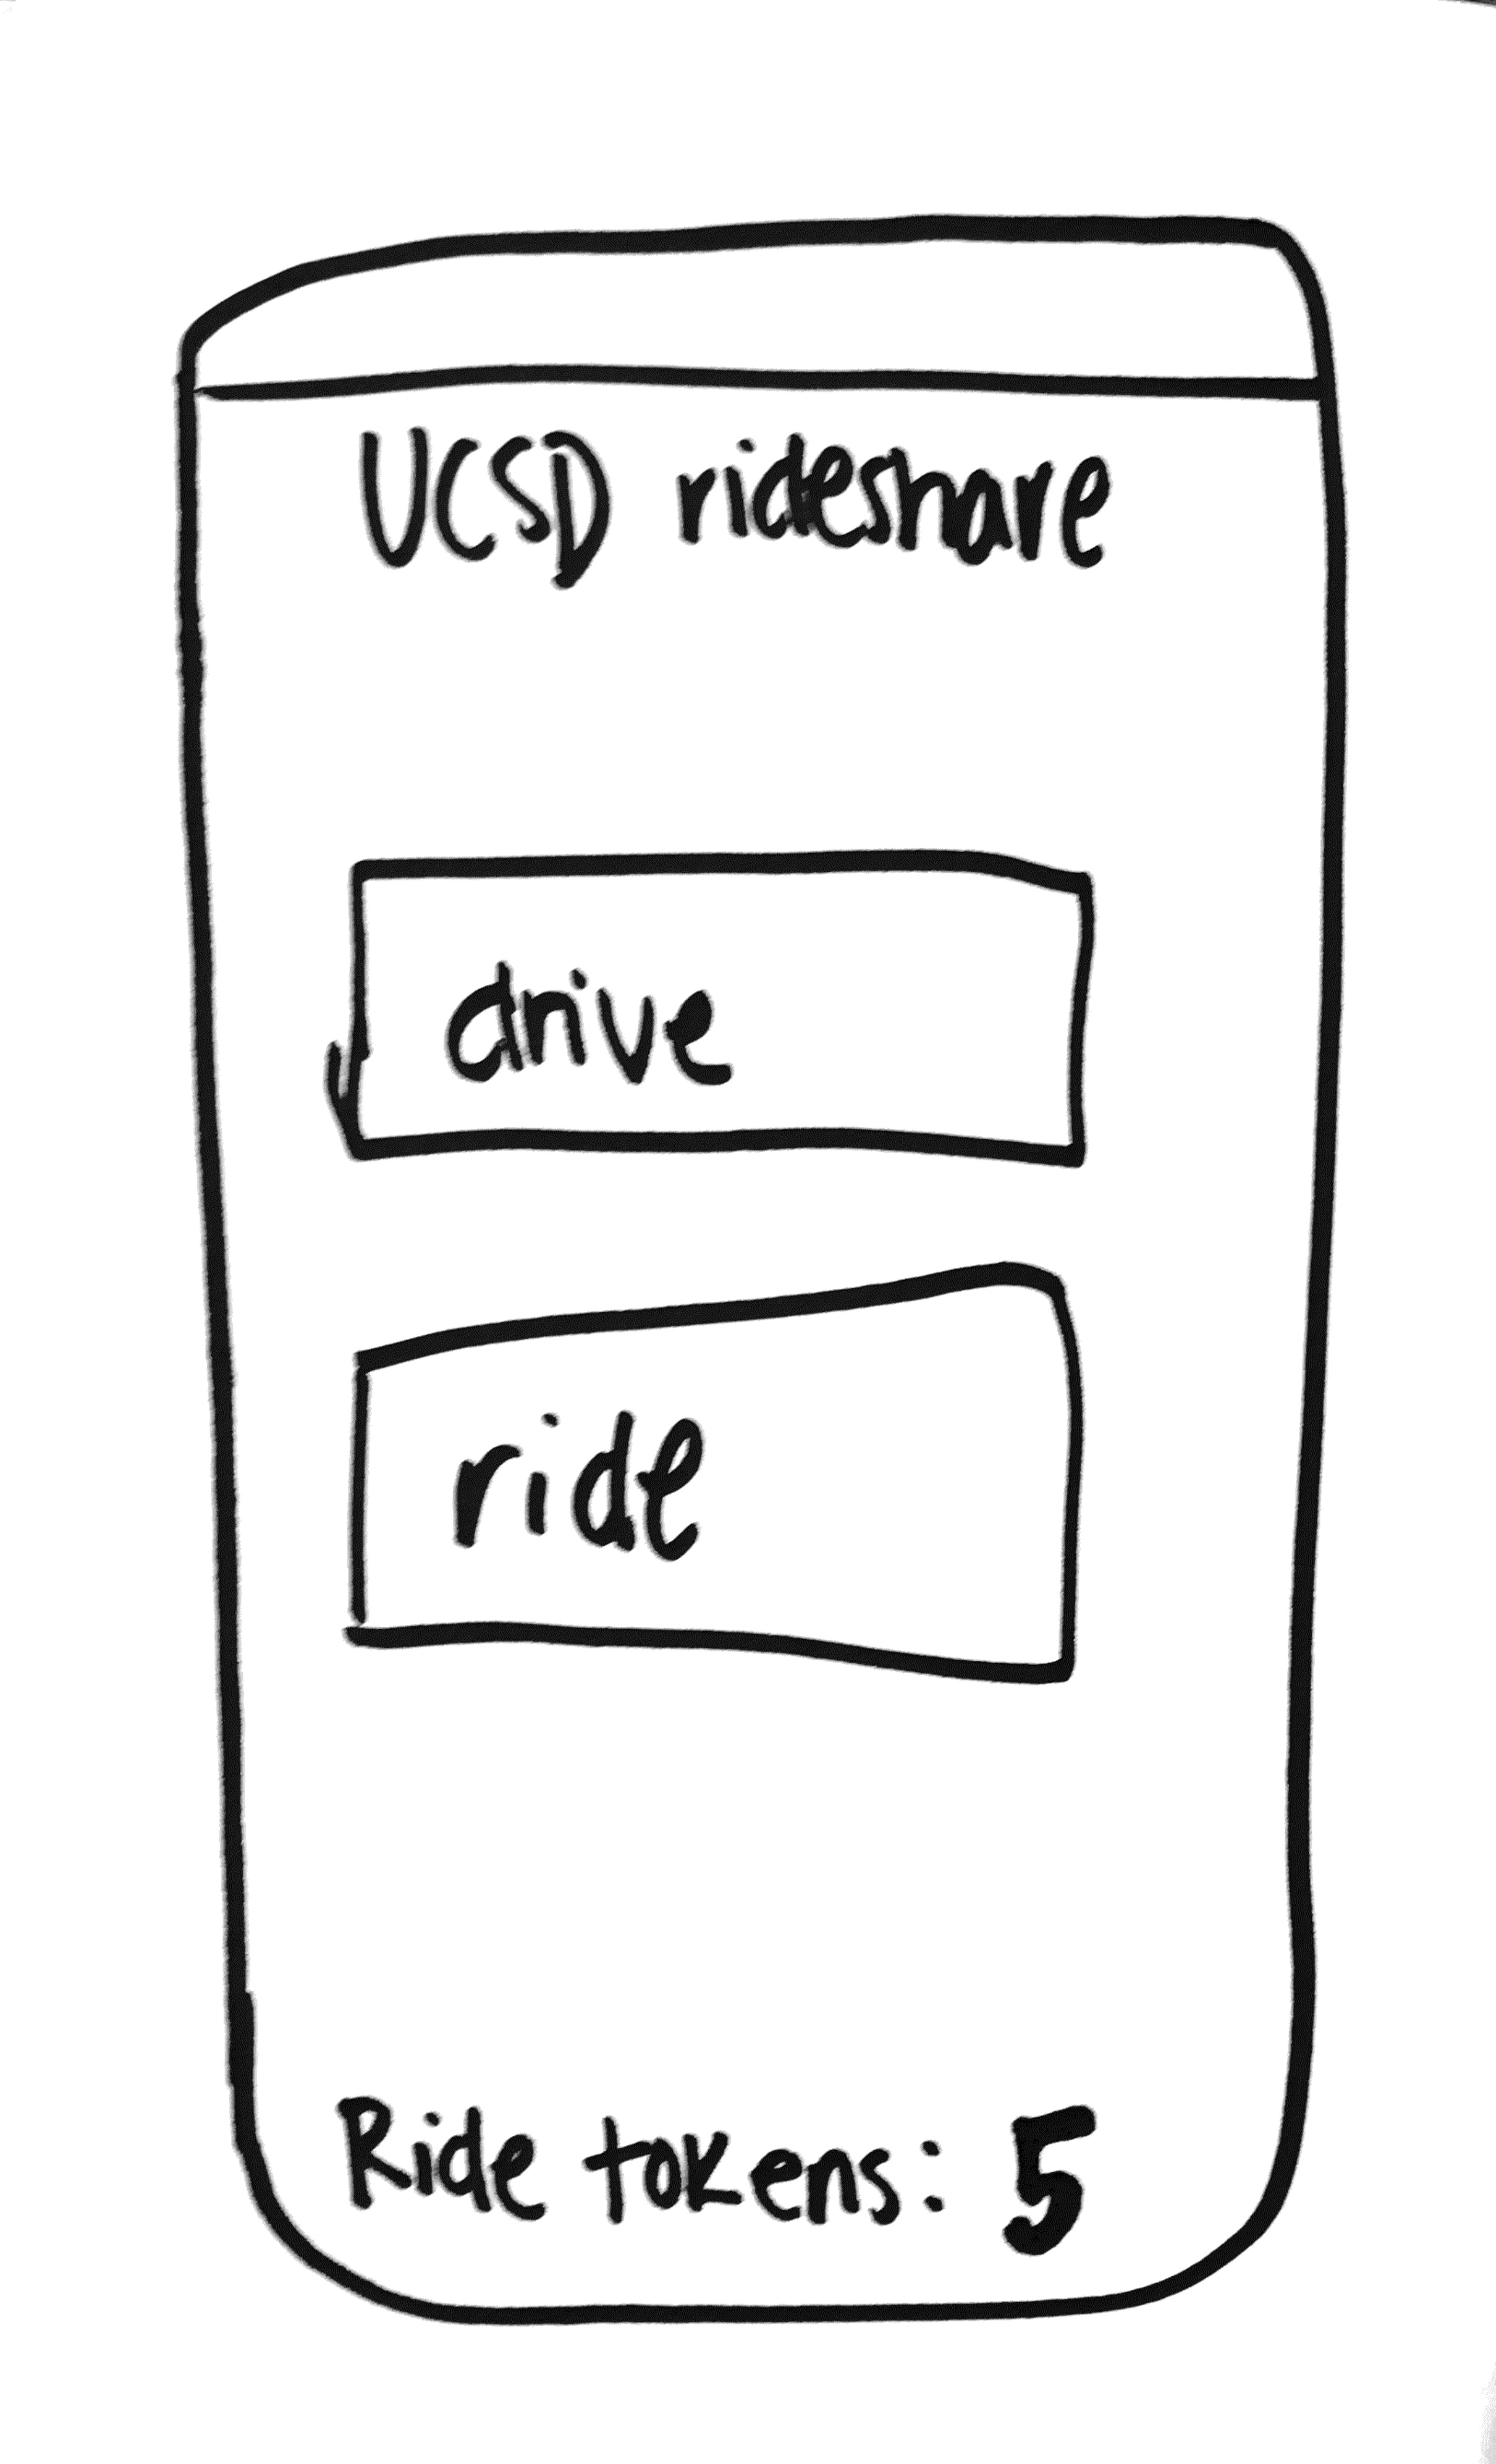 UCSD rideshare
drive
ride
Ride tokens: 5